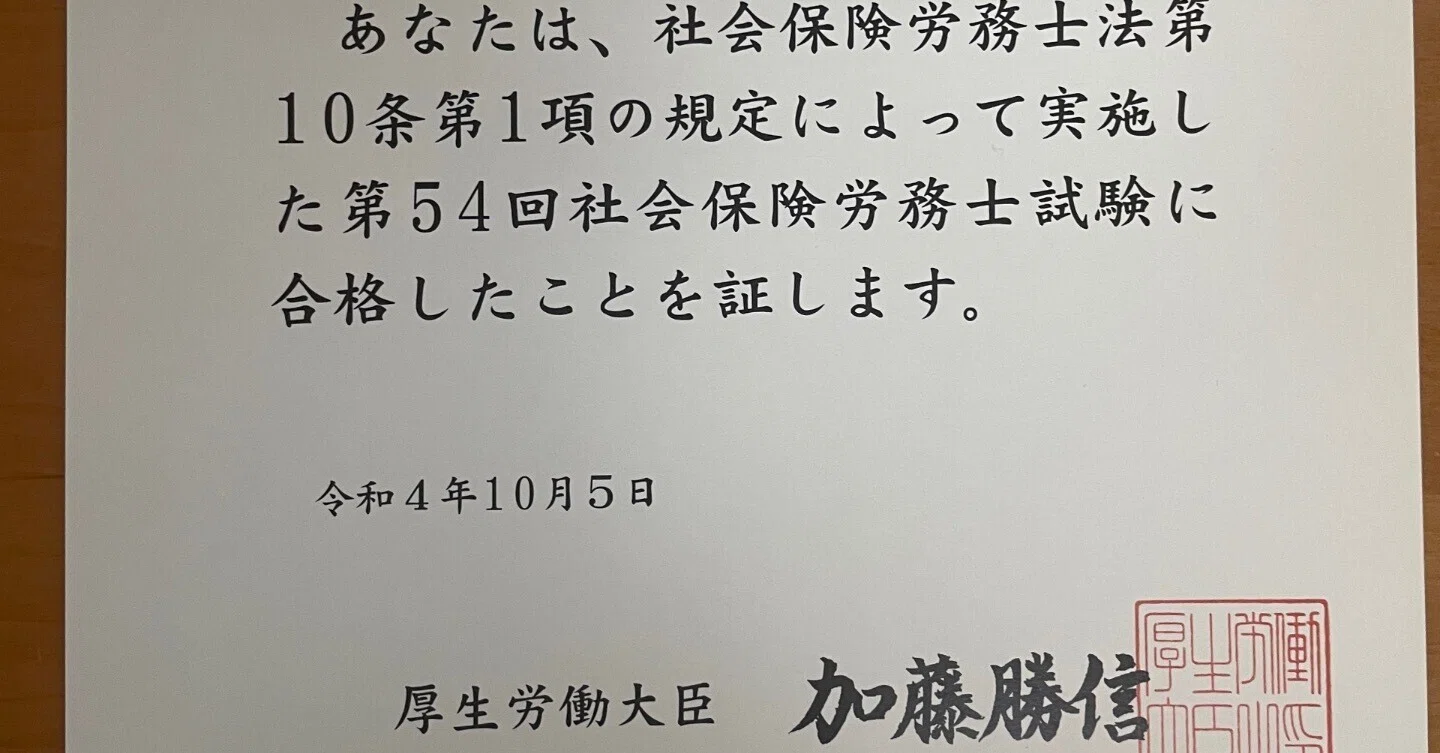 あなたは、社会保険労務士法第
10条第1項の規定によって実施し
た第54回社会保険労務士試験に
合格したことを証します。
令和4年10月5日
厚生労働大臣 加藤勝信
厚生労働